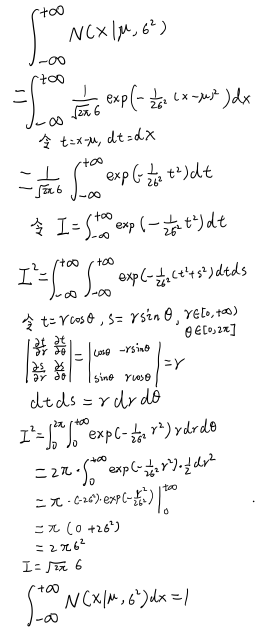 ∫_{-∞}^{+∞} N(x|μ, σ²)
= ∫_{-∞}^{+∞} 1/(√(2π) σ) exp(-1/(2σ²) (x-μ)²) dx
令 t=x-μ, dt=dx
= 1/(√(2π) σ) ∫_{-∞}^{+∞} exp(-1/(2σ²) t²) dt
令 I = ∫_{-∞}^{+∞} exp(-1/(2σ²) t²) dt
I² = ∫_{-∞}^{+∞} ∫_{-∞}^{+∞} exp(-1/(2σ²) (t²+s²) dt ds
令 t=rcosθ, s=rsinθ, r∈[0,+∞)
θ∈[0,2π]
|∂t/∂r ∂t/∂θ; ∂s/∂r ∂s/∂θ| = |cosθ -rsinθ; sinθ rcosθ| = r
dtds = r dr dθ
I² = ∫_0^{2π} ∫_0^{+∞} exp(-1/(2σ²) r²) r dr dθ
= 2π · ∫_0^{+∞} exp(-1/(2σ²) r²) · 1/2 dr²
= π · (-2σ²) · exp(-r²/(2σ²)) |_0^{+∞}
= π (0+2σ²)
= 2πσ²
I = √(2π) σ
∫_{-∞}^{+∞} N(x|μ, σ²) dx = 1